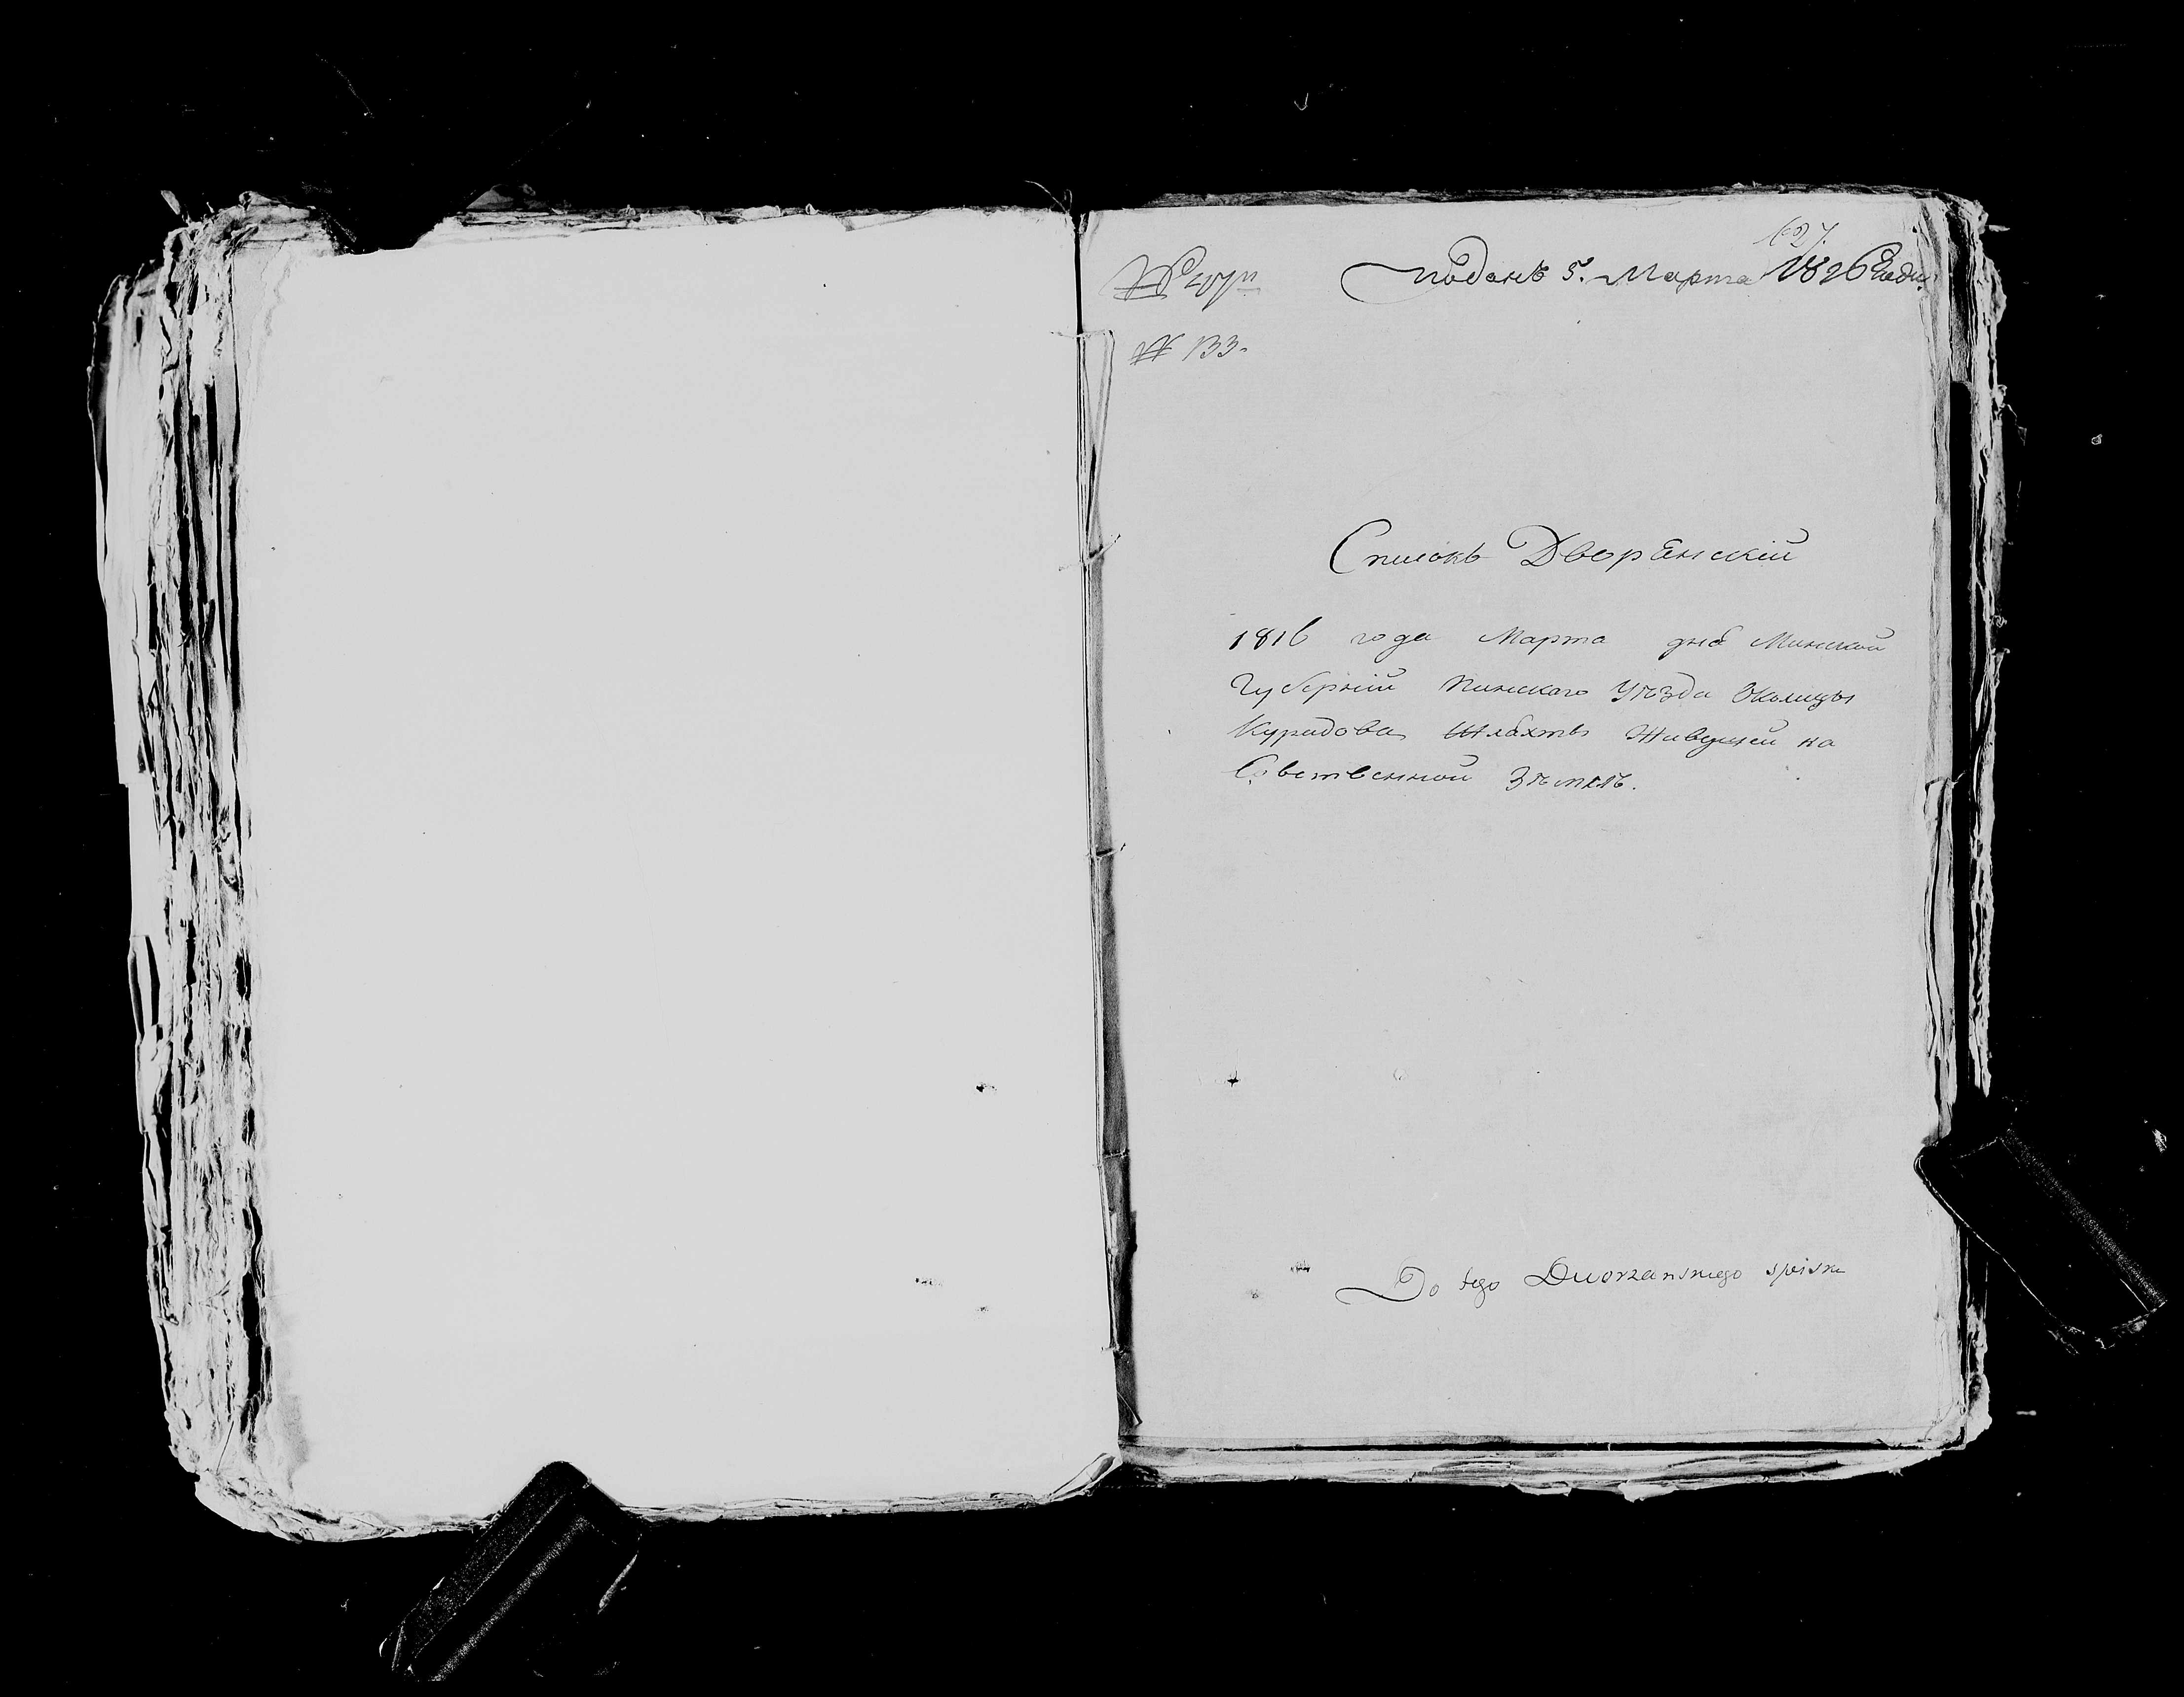 627.
Поданъ 5. Марта 1816 Года
№ 133.
Списокъ Дворянскій
1816 года Марта дня Минской
Губерніи Пинскаго Уѣзда Околицы
Курадова Шляхты Живущей на
Собственной Зѣмлѣ.
Do tego Dworzanskiego spisku